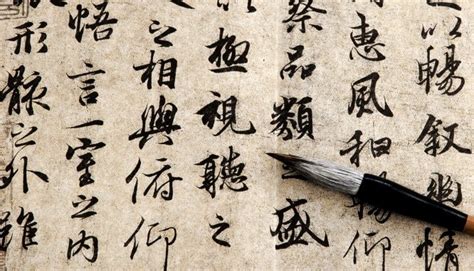 以暢叙幽情
惠風和暢仰
察品類之盛
極視聽之
之相與俯仰
悟言一室之內
形骸之外雖